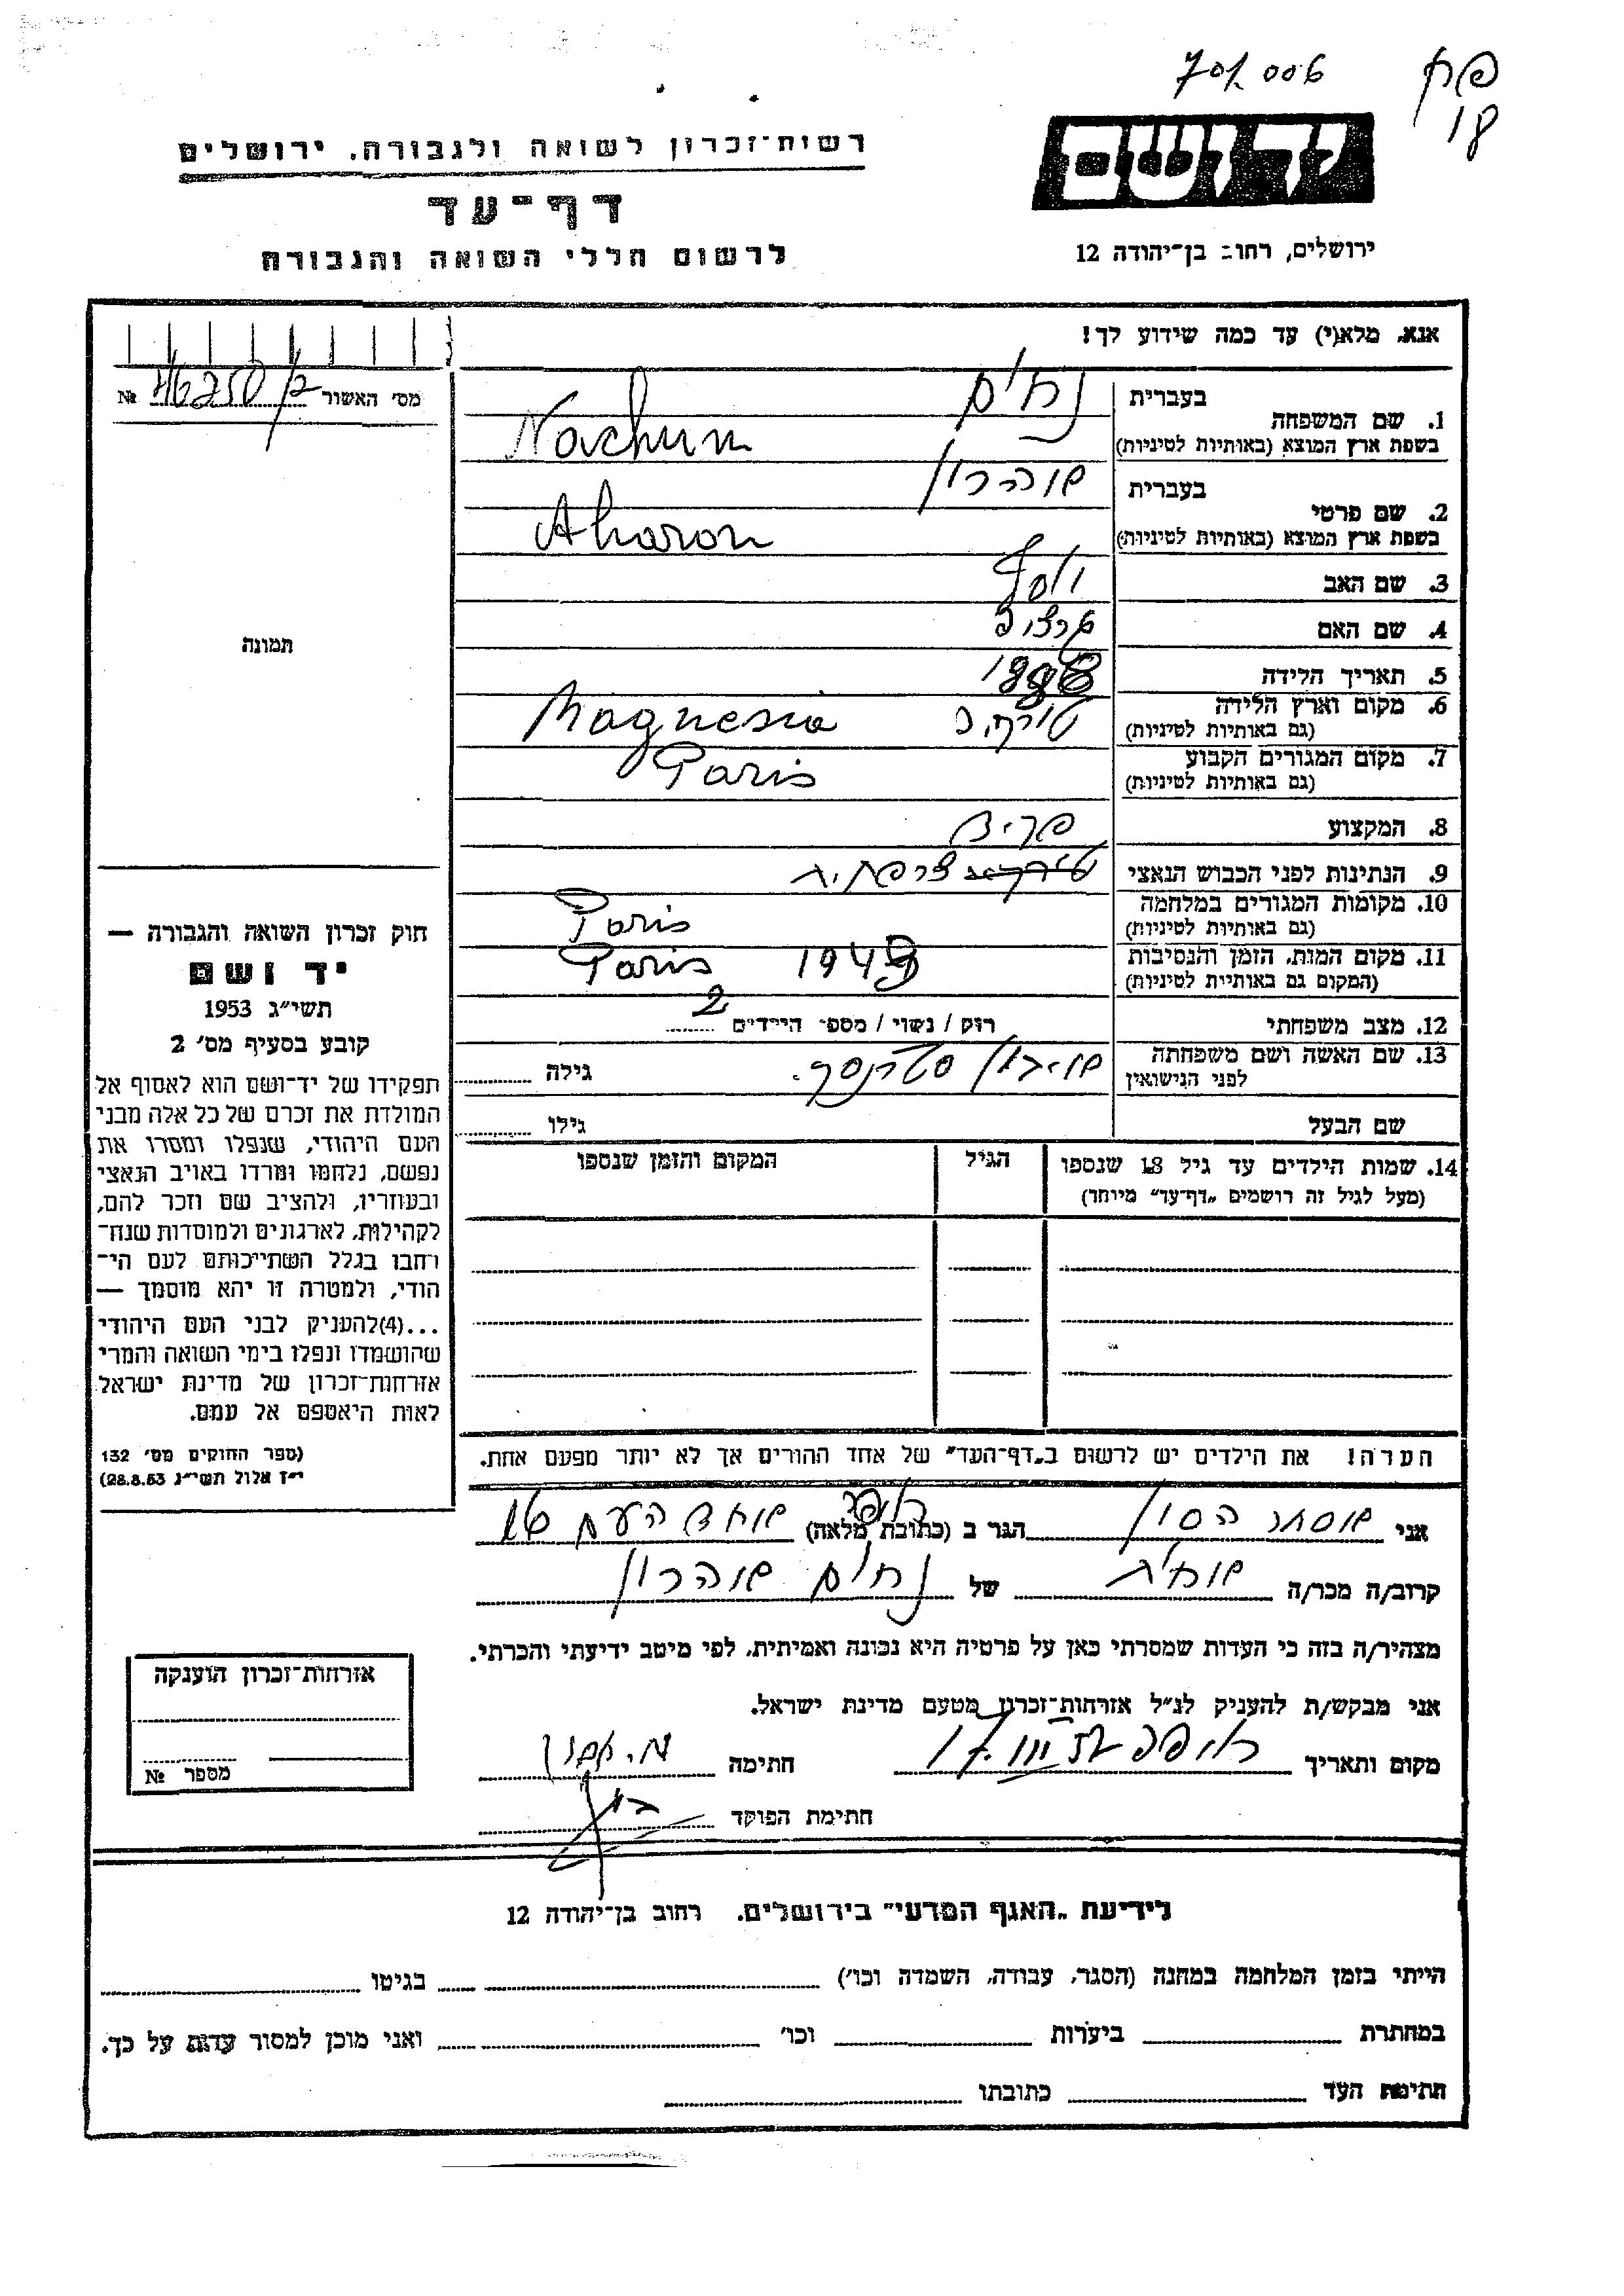 701.006
פח
18
רשות־זכרון לשואה ולגבורה. ירושלים
יד ושם
דף־עד
ירושלים, רחוב בן־יהודה 12
לרשום חללי השואה והגבורה
אנא, מלא(י) עד כמה שידוע לך!
מס׳ האשור № 46250
1. שם המשפחה
בעברית נחום
בשפת ארץ המוצא (באותיות לטיניות) Nachum
2. שם פרטי
בעברית אהרון
בשפת ארץ המוצא (באותיות לטיניות) Aharon
3. שם האב יוסף
4. שם האם
תמונה
5. תאריך הלידה 1888
6. מקום וארץ הלידה
(גם באותיות לטיניות) טורקיה Magnesia
7. מקום המגורים הקבוע
(גם באותיות לטיניות) Paris
8. המקצוע פקיד
9. הנתינות לפני הכבוש הנאצי צרפתית
10. מקומות המגורים במלחמה
(גם באותיות לטיניות) Paris
11. מקום המות, הזמן והנסיבות
(המקום גם באותיות לטיניות) Paris 1943
12. מצב משפחתי רוק / נשוי / מספר הילדים 2
13. שם האשה ושם משפחתה
לפני הנישואין גילה
שם הבעל גילו
14. שמות הילדים עד גיל 18 שנספו הגיל המקום והזמן שנספו
(מעל לגיל זה רושמים „דף־עד״ מיוחד)
חוק זכרון השואה והגבורה —
יד ושם
תשי״ג 1953
קובע בסעיף מס׳ 2
תפקידו של יד־ושם הוא לאסוף אל
המולדת את זכרם של כל אלה מבני
העם היהודי, שנפלו ומסרו את
נפשם, נלחמו ומרדו באויב הנאצי
ובעוזריו, ולהציב שם וזכר להם,
לקהילות, לארגונים ולמוסדות שנח־
רבו בגלל השתייכותם לעם הי־
הודי, ולמטרה זו יהא מוסמך —
...(4)להעניק לבני העם היהודי
שהושמדו ונפלו בימי השואה והמרי
אזרחות־זכרון של מדינת ישראל
לאות היאספם אל עמם.
(ספר החוקים מס׳ 132
י״ז אלול תשי״ג 28.8.53)
הערה! את הילדים יש לרשום ב„דף־העד״ של אחד ההורים אך לא יותר מפעם אחת.
אני אסתר הסון הגר ב (כתובת מלאה) חיפה אחד העם 16
קרוב/ה מכר/ה אחות של נחום אהרון
מצהיר/ה בזה כי העדות שמסרתי כאן על פרטיה היא נכונה ואמיתית, לפי מיטב ידיעתי והכרתי.
אני מבקש/ת להעניק לנ״ל אזרחות־זכרון מטעם מדינת ישראל.
מקום ותאריך חיפה חתימה
חתימת הפוקד
אזרחות־זכרון הוענקה
מספר №
לידיעת „האגף המדעי״ בירושלים. רחוב בן־יהודה 12
הייתי בזמן המלחמה במחנה (הסגר, עבודה, השמדה וכו׳) בגיטו
במחתרת ביערות וכו׳ ואני מוכן למסור עדות על כך.
חתימת העד כתובתו